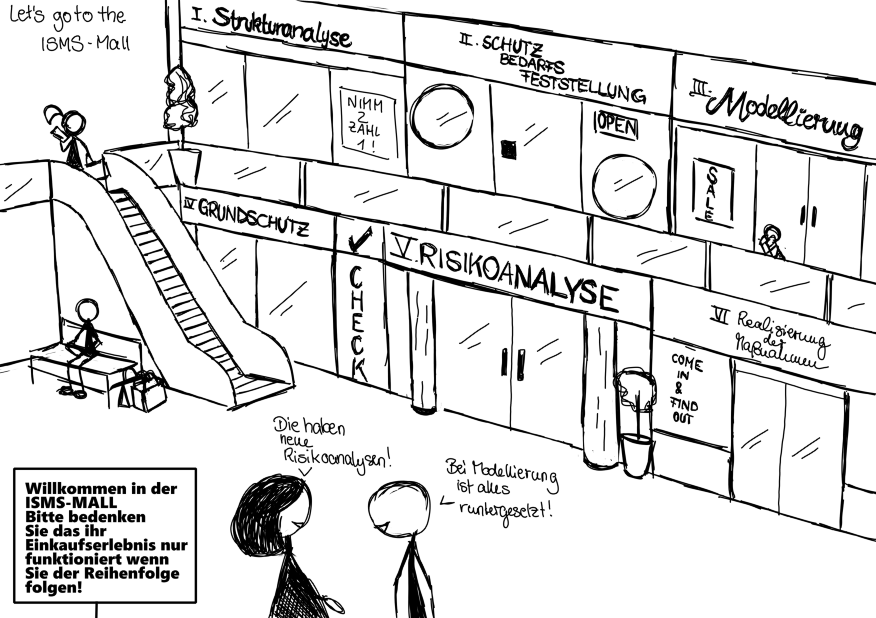 Let's go to the
ISMS-Mall
I. Strukturanalyse
II. SCHUTZ
BEDARFS
FESTSTELLUNG
III. Modellierung
NIMM
2
ZAHL
1!
OPEN
SALE
IV GRUNDSCHUTZ
CHECK
V. RISIKOANALYSE
VI Realisierung
der
Maßnahmen
COME
IN
&
FIND
OUT
Die haben
neue
Risikoanalysen!
Bei Modellierung
ist alles
runtergesetzt!
Willkommen in der
ISMS-MALL
Bitte bedenken
Sie das ihr
Einkaufserlebnis nur
funktioniert wenn
Sie der Reihenfolge
folgen!